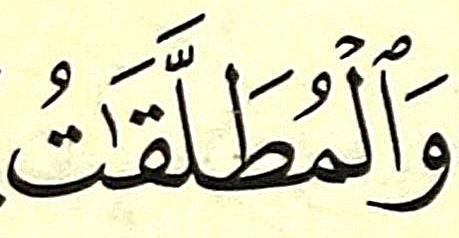 وَٱلْمُطَلَّقَـٰتُ